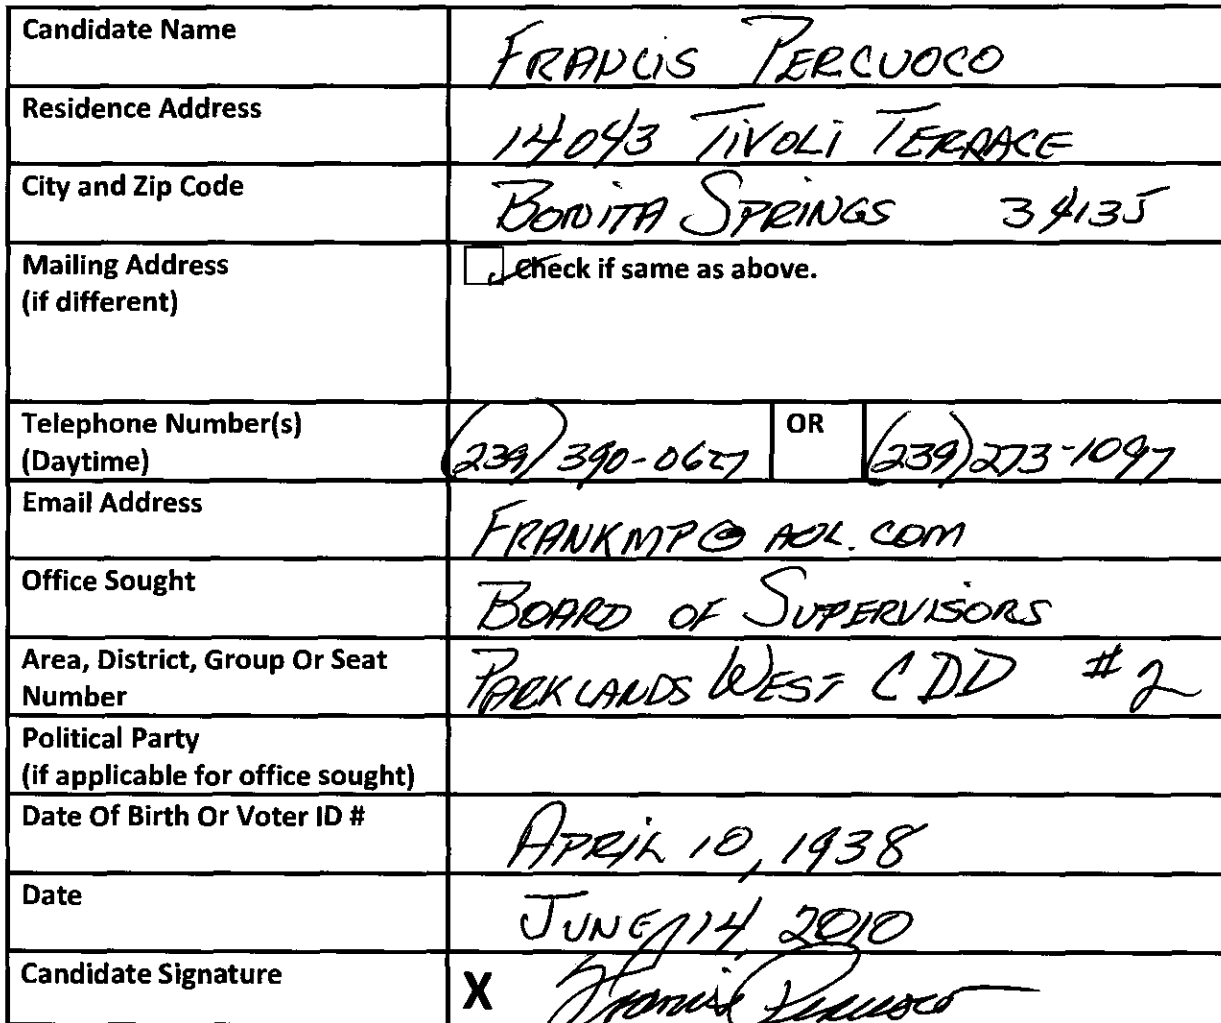 Candidate Name FRANCIS PERCUOCO
Residence Address 14043 TIVOLI TERRACE
City and Zip Code BONITA SPRINGS 34135
Mailing Address
(if different)
Check if same as above.
Telephone Number(s)
(Daytime)
(239) 390-0627 OR (239) 273-1097
Email Address FRANKMP@AOL.COM
Office Sought BOARD OF SUPERVISORS
Area, District, Group Or Seat
Number
PARKLANDS WEST CDD #2
Political Party
(if applicable for office sought)
Date Of Birth Or Voter ID # APRIL 10, 1938
Date JUNE 14, 2010
Candidate Signature X Francis Percuoco